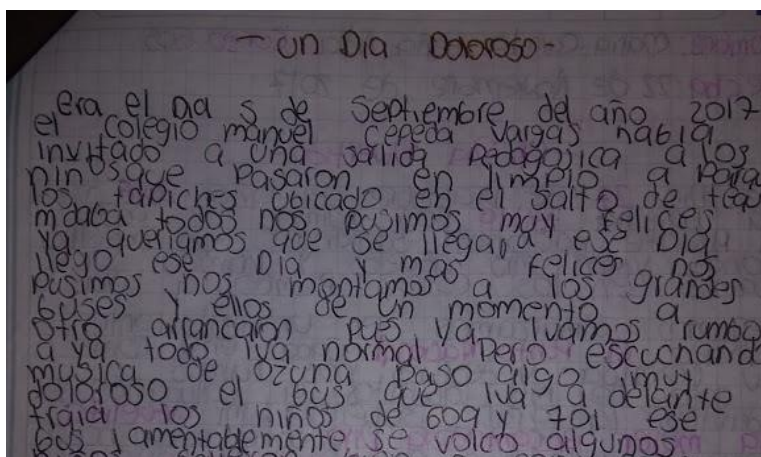 - Un Dia Doloroso -
era el Dia 5 de Septiembre del año 2017
el colegio manuel cepeda vargas habia
invitado a una salida pedagojica a los
niños que pasaron en limpio a para
los tapiches ubicado en el salto de tequ
mdaba todos nos pusimos muy felices
ya queriamos que se llegara ese Dia
llego ese Dia y mas felices nos
pusimos nos montamos a los grandes
buses y ellos de un momento a
otro arrancaron pues ya ivamos rumbo
a ya todo iva normal pero escuchand
musica de ozuna paso algo muy
doloroso el bus que iva a delante
traia los niños de 609 y 701 ese
bus lamentablemente se volco algunos